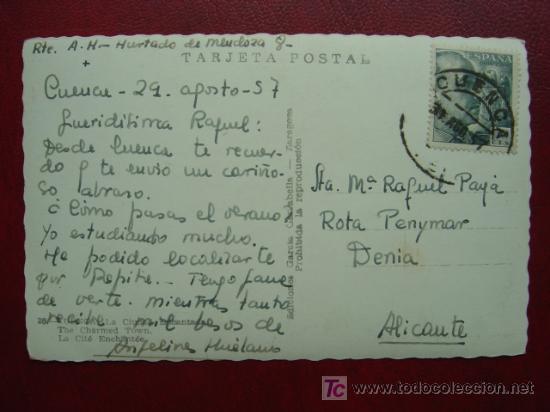 Rte. A. H- Hurtado de Mendoza 8-
+
TARJETA POSTAL
Cuenca - 29. agosto - 57
Queridísima Raquel:
Desde Cuenca te recuer-
do y te envio un cariño-
so abrazo.
¿ Cómo pasas el verano?
Yo estudiando mucho.
He podido localizarte
por Pepita. - Tengo ganas
de verte. mientras tanto
recibe mil besos de
Angelines
La Ciudad Encantada
The Charmed Town.
La Cité Enchantée
Ediciones García Garrabella - Zaragoza
Prohibida la reproducción
ESPAÑA
CUENCA
Sta. Mª Raquel Payá
Rota Penymar
Denia
Alicante
TC todocoleccion
www.todocoleccion.net